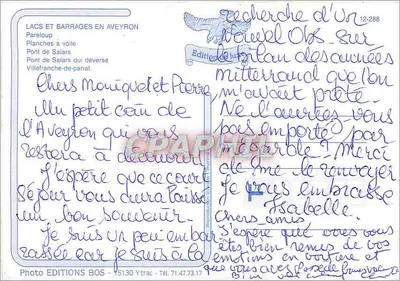 LACS ET BARRAGES EN AVEYRON
Pareloup
Planches à voile
Pont de Salars
Pont de Salars qui déverse
Villefranche-de-panat.
Chers Monique et Pierre
Un petit coin de
l'Aveyron qui vous
restera à découvrir
J'espère que ce court
séjour vous aura laissé
un bon souvenir.
Je suis un peu embar
rassée car je suis à la
recherche d'un
12-288
Nouvel Obs. sur
le bilan des années
Mitterrand que l'on
m'avait prêté.
Ne l'auriez vous
pas emporté par
mégarde? Merci
de me le renvoyer
Je vous embrasse
Isabelle.
Chers amis
J'espère que vous vous
êtes bien remis de vos
émotions en voiture et
que vous avez
CPAPHIL
Photo EDITIONS BOS - 15130 Ytrac - Tél. 71.47.73.17